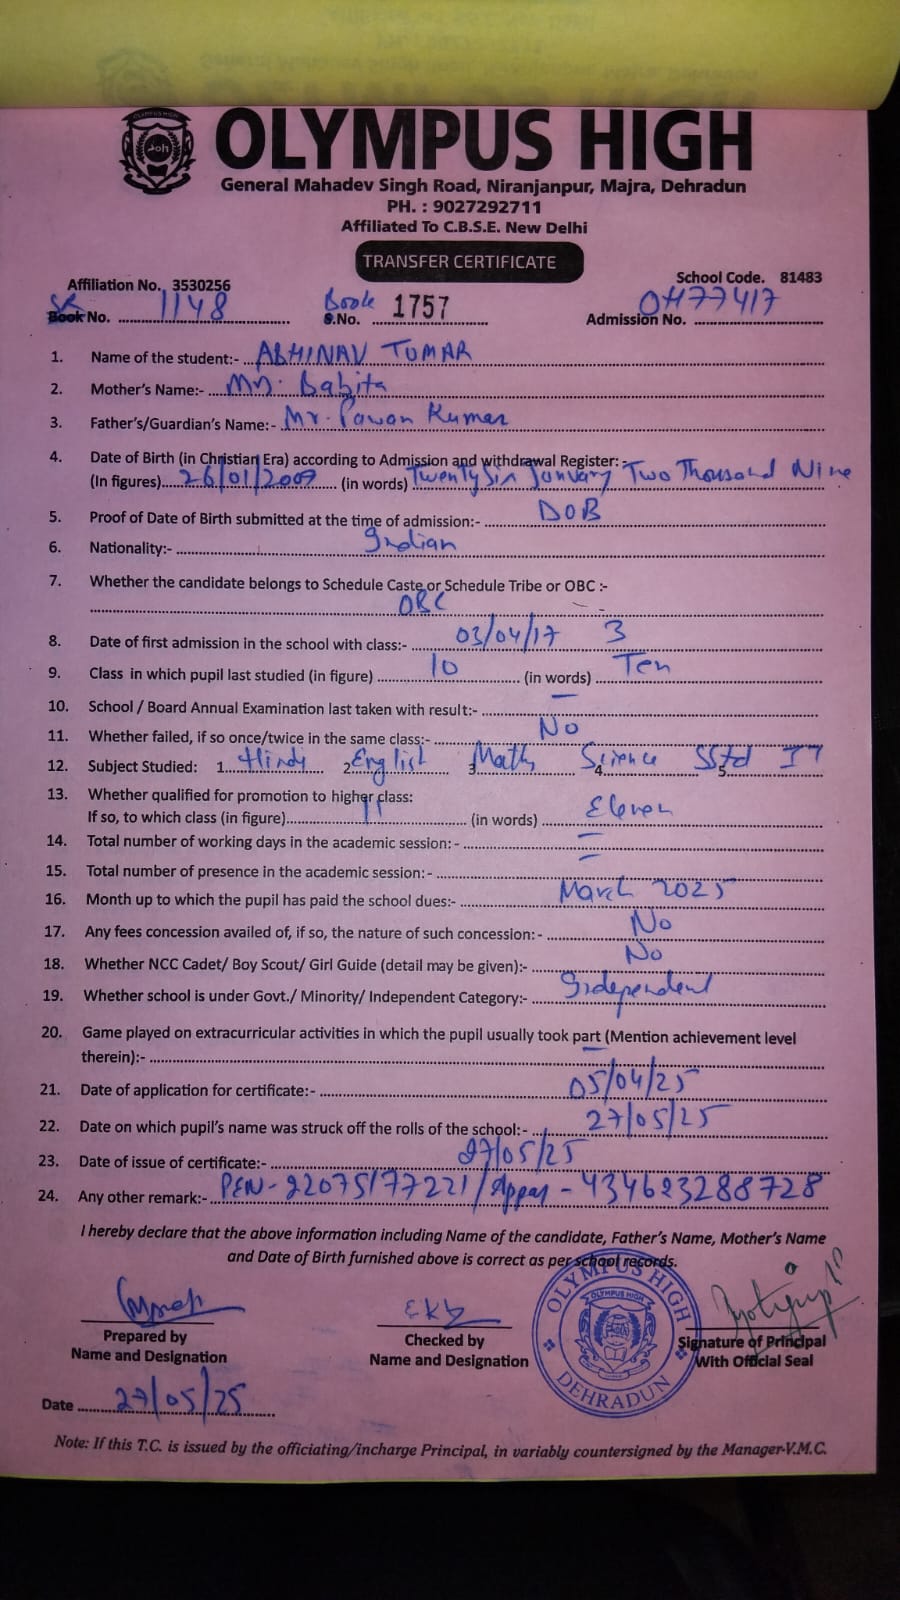 OLYMPUS HIGH
General Mahadev Singh Road, Niranjanpur, Majra, Dehradun
PH. : 9027292711
Affiliated To C.B.S.E. New Delhi
TRANSFER CERTIFICATE
Affiliation No. 3530256 School Code. 81483
SR Book No. 1148 Book S.No. 1757 Admission No. OH77417
1. Name of the student:- ABHINAV TOMAR
2. Mother's Name:- Mrs. Babita
3. Father's/Guardian's Name:- Mr. Pawan Kumar
4. Date of Birth (in Christian Era) according to Admission and withdrawal Register:-
(In figures) 26/01/2009 (in words) Twenty Six January Two Thousand Nine
5. Proof of Date of Birth submitted at the time of admission:- DOB
6. Nationality:- Indian
7. Whether the candidate belongs to Schedule Caste or Schedule Tribe or OBC :-
OBC
8. Date of first admission in the school with class:- 03/04/17 3
9. Class in which pupil last studied (in figure) 10 (in words) Ten
10. School / Board Annual Examination last taken with result:- —
11. Whether failed, if so once/twice in the same class:- No
12. Subject Studied: 1. Hindi 2. English 3. Maths 4. Science 5. SStd IT
13. Whether qualified for promotion to higher class:
If so, to which class (in figure) 11 (in words) Eleven
14. Total number of working days in the academic session: - —
15. Total number of presence in the academic session: - —
16. Month up to which the pupil has paid the school dues:- March 2025
17. Any fees concession availed of, if so, the nature of such concession: - No
18. Whether NCC Cadet/ Boy Scout/ Girl Guide (detail may be given):- No
19. Whether school is under Govt./ Minority/ Independent Category:- Independent
20. Game played on extracurricular activities in which the pupil usually took part (Mention achievement level
therein):- —
21. Date of application for certificate:- 05/04/25
22. Date on which pupil's name was struck off the rolls of the school:- 27/05/25
23. Date of issue of certificate:- 27/05/25
24. Any other remark:- PEN-22075177221/Appar-434623288728
I hereby declare that the above information including Name of the candidate, Father's Name, Mother's Name
and Date of Birth furnished above is correct as per school records.
OLYMPUS HIGH
DEHRADUN
Prepared by Checked by Signature of Principal
Name and Designation Name and Designation With Official Seal
Date 27/05/25
Note: If this T.C. is issued by the officiating/incharge Principal, in variably countersigned by the Manager-V.M.C.